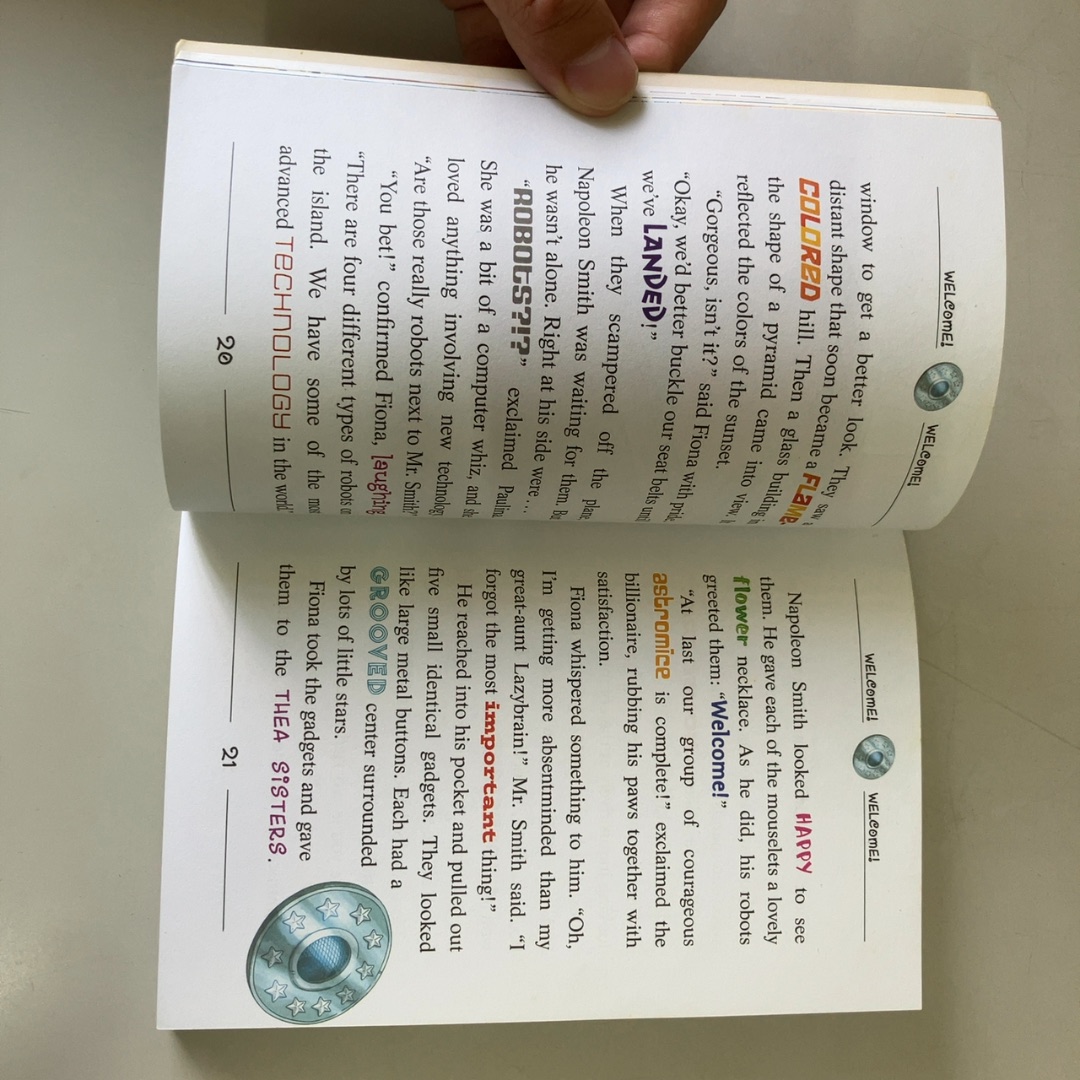 WELCOME! WELCOME!
window to get a better look. They saw a
distant shape that soon became a FLAME-
COLORED hill. Then a glass building in
the shape of a pyramid came into view. It
reflected the colors of the sunset.
“Gorgeous, isn’t it?” said Fiona with pride
“Okay, we’d better buckle our seat belts until
we’ve LANDED!”
When they scampered off the plane
Napoleon Smith was waiting for them. Bu
he wasn’t alone. Right at his side were . . .
“ROBOTS?!?” exclaimed Paulina
She was a bit of a computer whiz, and she
loved anything involving new technology
“Are those really robots next to Mr. Smith?”
“You bet!” confirmed Fiona, laughing
“There are four different types of robots on
the island. We have some of the most
advanced TECHNOLOGY in the world
20
WELCOME! WELCOME!
Napoleon Smith looked HAPPY to see
them. He gave each of the mouselets a lovely
flower necklace. As he did, his robots
greeted them: “Welcome!”
“At last our group of courageous
astromice is complete!” exclaimed the
billionaire, rubbing his paws together with
satisfaction.
Fiona whispered something to him. “Oh,
I’m getting more absentminded than my
great-aunt Lazybrain!” Mr. Smith said. “I
forgot the most important thing!”
He reached into his pocket and pulled out
five small identical gadgets. They looked
like large metal buttons. Each had a
GROOVED center surrounded
by lots of little stars.
Fiona took the gadgets and gave
them to the THEA SISTERS.
21